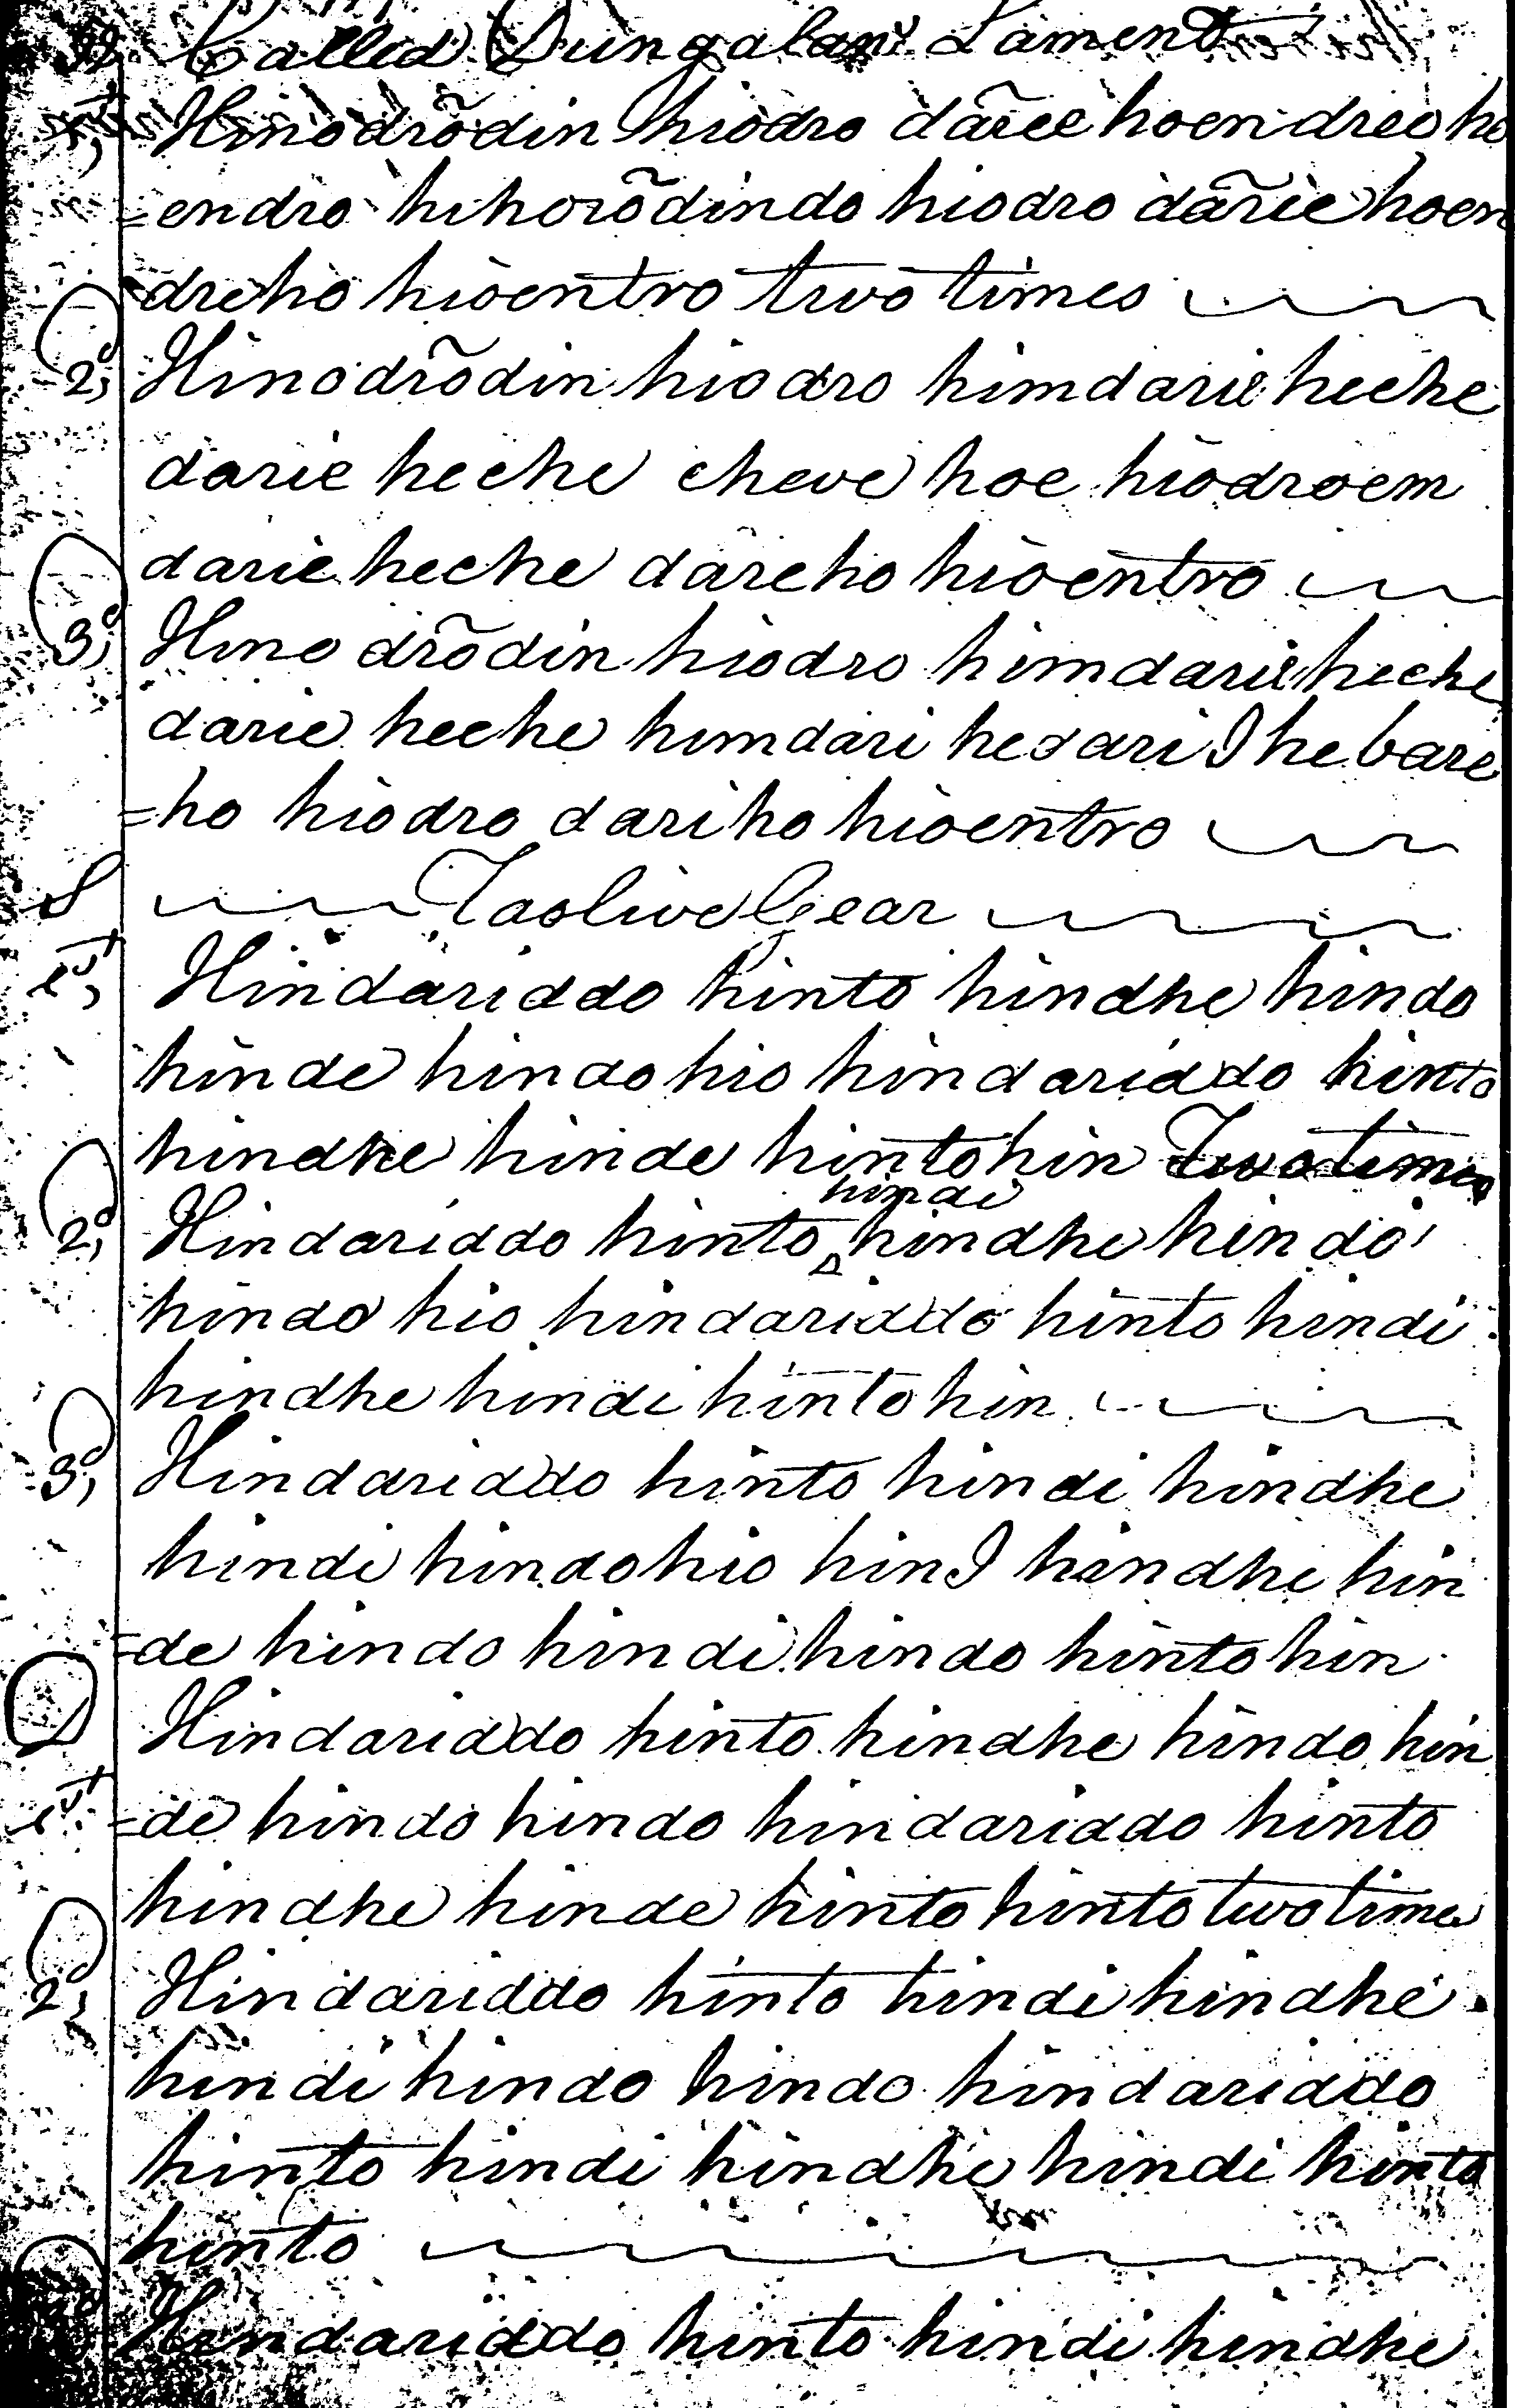 Called Dungalan's Lament
1st, Hinodrõdin hiodro dãrie hoendreo ho
=endro hihorõdindo hiodro dãrie hoen
dreho hioentro two times
2d, Hinodrõdin hiodro himdarie heche
darie heche cheve hoe hiodroem
darie heche dareho hioentro
3d, Hino drõdin hiodro himdarie heche
darie heche himdari hedari I he bare
=ho hiodro dariho hioentro
S Taolive Gear
1st, Hindariddo hinto hindhe hindo
hinde hindo hio hindariddo hinto
hindhe hinde hintohin Two times
hindi
2d, Hindariddo hinto hindhe hindo
hindo hio hindariddo hinto hindi
hindhe hindi hinto hin
3d, Hindariddo hinto hindi hindhe
hindi hindo hio hin I hindhe hin
=de hindo hindi hindo hinto hin
Hindariddo hinto hindhe hindo hin
1st =de hindo hindo hindariddo hinto
hindhe hinde hinto hinto two times
2d, Hindariddo hinto hindi hindhe
hindi hindo hindo hindariddo
hinto hindi hindhe hindi hinto
hinto
Hindariddo hinto hindi hindhe